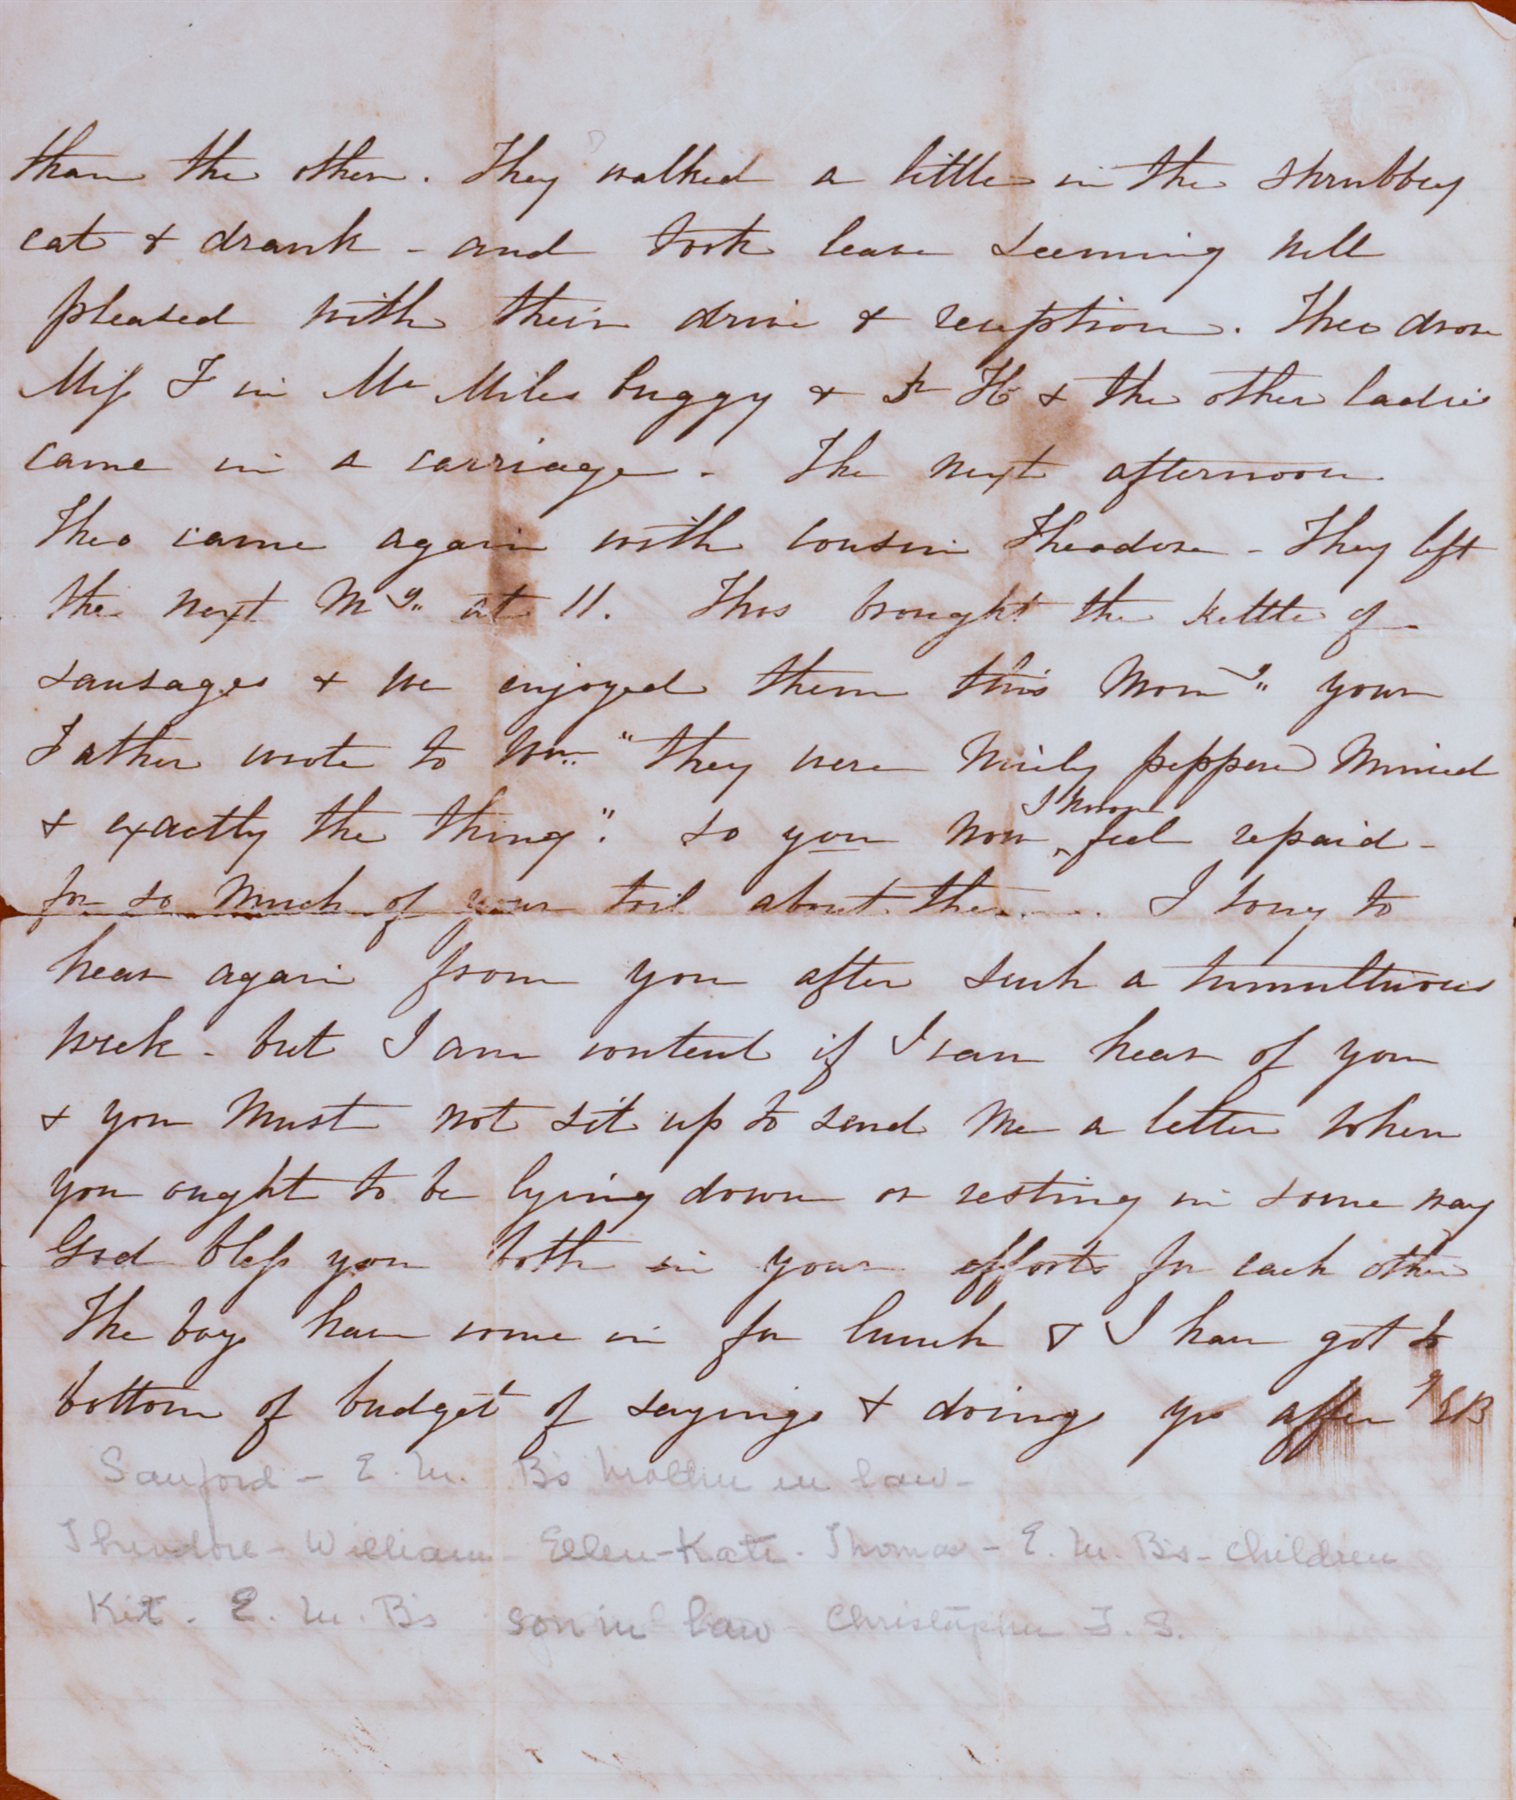 than the other. They walked a little in the shrubbey
eat & drank - and took leave seeming well
pleased with their drive & reception. Theo drove
Miss F in Mr Miles buggy & Dr H & the other ladies
came in a carriage - The next afternoon
Theo came again with cousin Theodore - They left
the next Mg at 11. Thos brought the kettle of
sausages & we enjoyed them this Morng your
Father wrote to Wm "they were nicely pepper minced
& exactly the thing". so you now I know feel repaid -
for so much of your toil about I long to
hear again from you after such a tumultuous
week - but I am content if I can hear of you
& you must not sit up to send me a letter when
you ought to be lying down or resting in some way
God bless you both in your efforts for each other
The boys have come in for lunch & I have got to
bottom of budget of sayings & doings yrs affen EB
Sanford - E. M. B's Mother in law -
Theodore - William - Ellen - Kate - Thomas - E. M. B's - children
Kit - E. M. B's son in law - Christopher T. S.